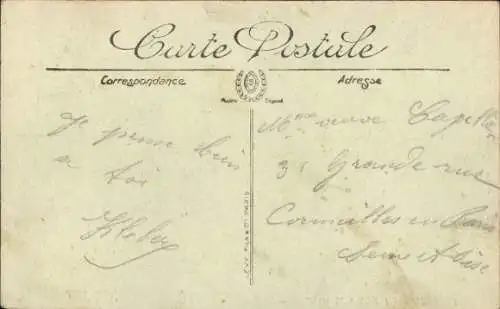 Carte Postale
Correspondance
Adresse
Modèle Déposé
Je pense bien
a toi
Mme veuve Capelle
31 Grande rue
Cormeilles en Paris
Seine et Oise